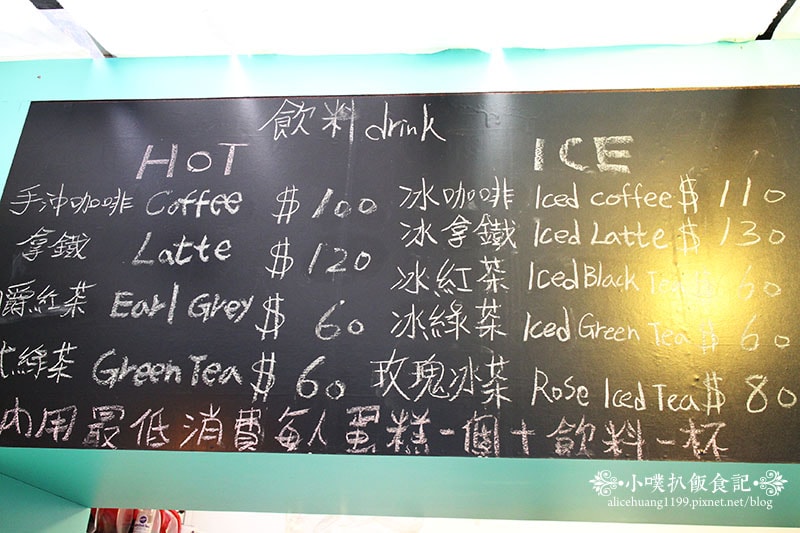 飲料 drink
HOT
手沖咖啡 Coffee $100
拿鐵 Latte $120
爵紅茶 Earl Grey $60
式綠茶 Green Tea $60
ICE
冰咖啡 Iced coffee $110
冰拿鐵 Iced Latte $130
冰紅茶 Iced Black Tea 60
冰綠茶 Iced Green Tea $60
玫瑰冰茶 Rose Iced Tea $80
內用最低消費每人蛋糕一個+飲料一杯
小噗扒飯食記
alicehuang1199.pixnet.net/blog